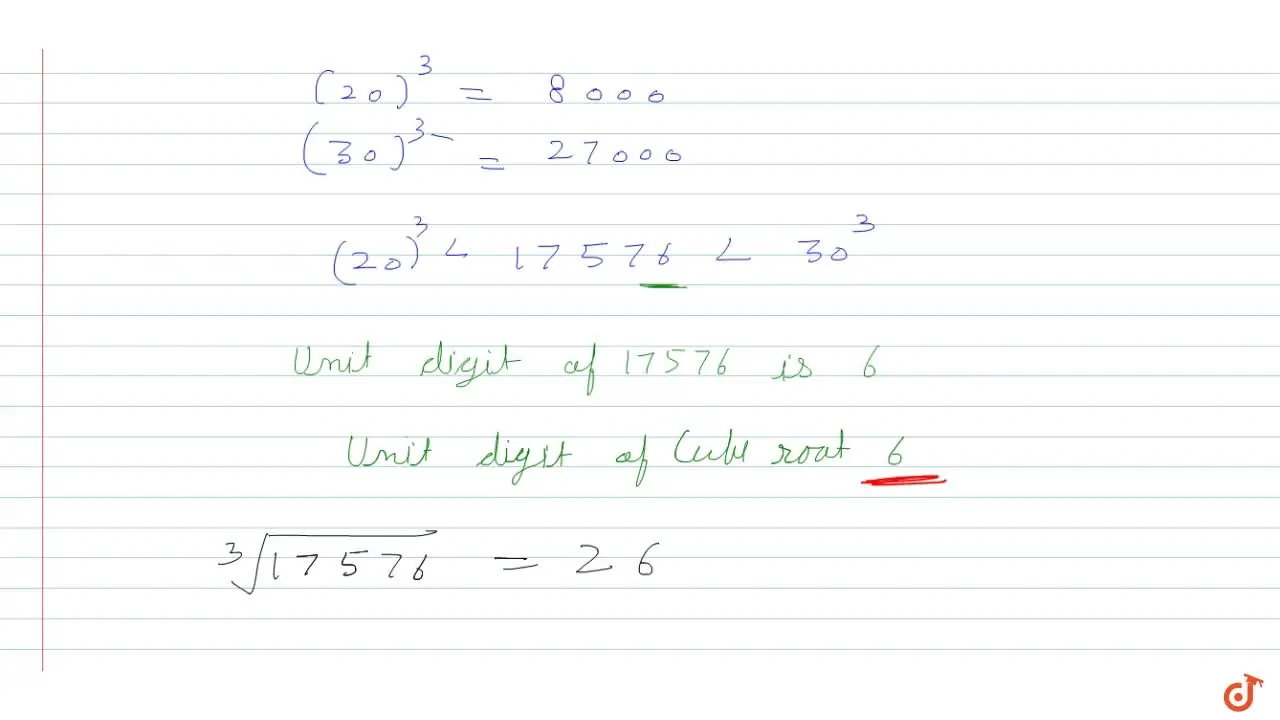 (20)³ = 8000
(30)³ = 27000
(20)³ < 17576 < 30³
Unit digit of 17576 is 6
Unit digit of Cube root 6
³√17576 = 26